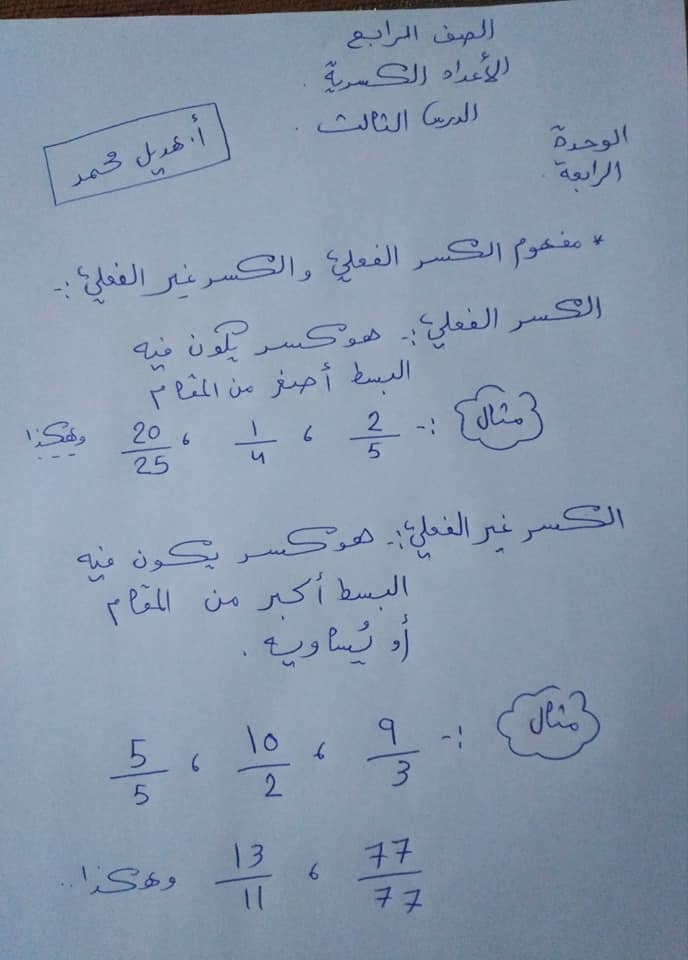 الصف الرابع
الأعداد الكسرية.
الدرس الثالث.
الوحدة
الرابعة.
أ. هديل محمد
* مفهوم الكسر الفعلي والكسر غير الفعلي :-
الكسر الفعلي :- هو كسر يكون فيه
البسط أصغر من المقام
مثال :- 2/5 ، 1/4 ، 20/25 وهكذا
الكسر غير الفعلي :- هو كسر يكون فيه
البسط أكبر من المقام
أو يُساويه .
مثال :- 9/3 ، 10/2 ، 5/5
77/77 ، 13/11 وهكذا ..